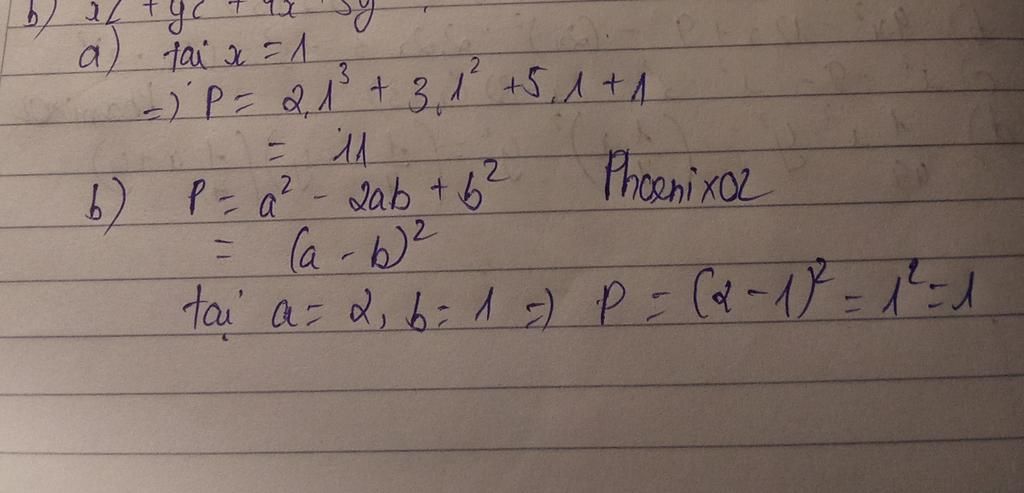 b)
a) tại x = 1
=) P = 2.1³ + 3.1² + 5.1 + 1
= 11
b) P = a² - 2ab + b² Phoenix02
= (a - b)²
tại a = 2, b = 1 =) P = (2 - 1)² = 1² = 1